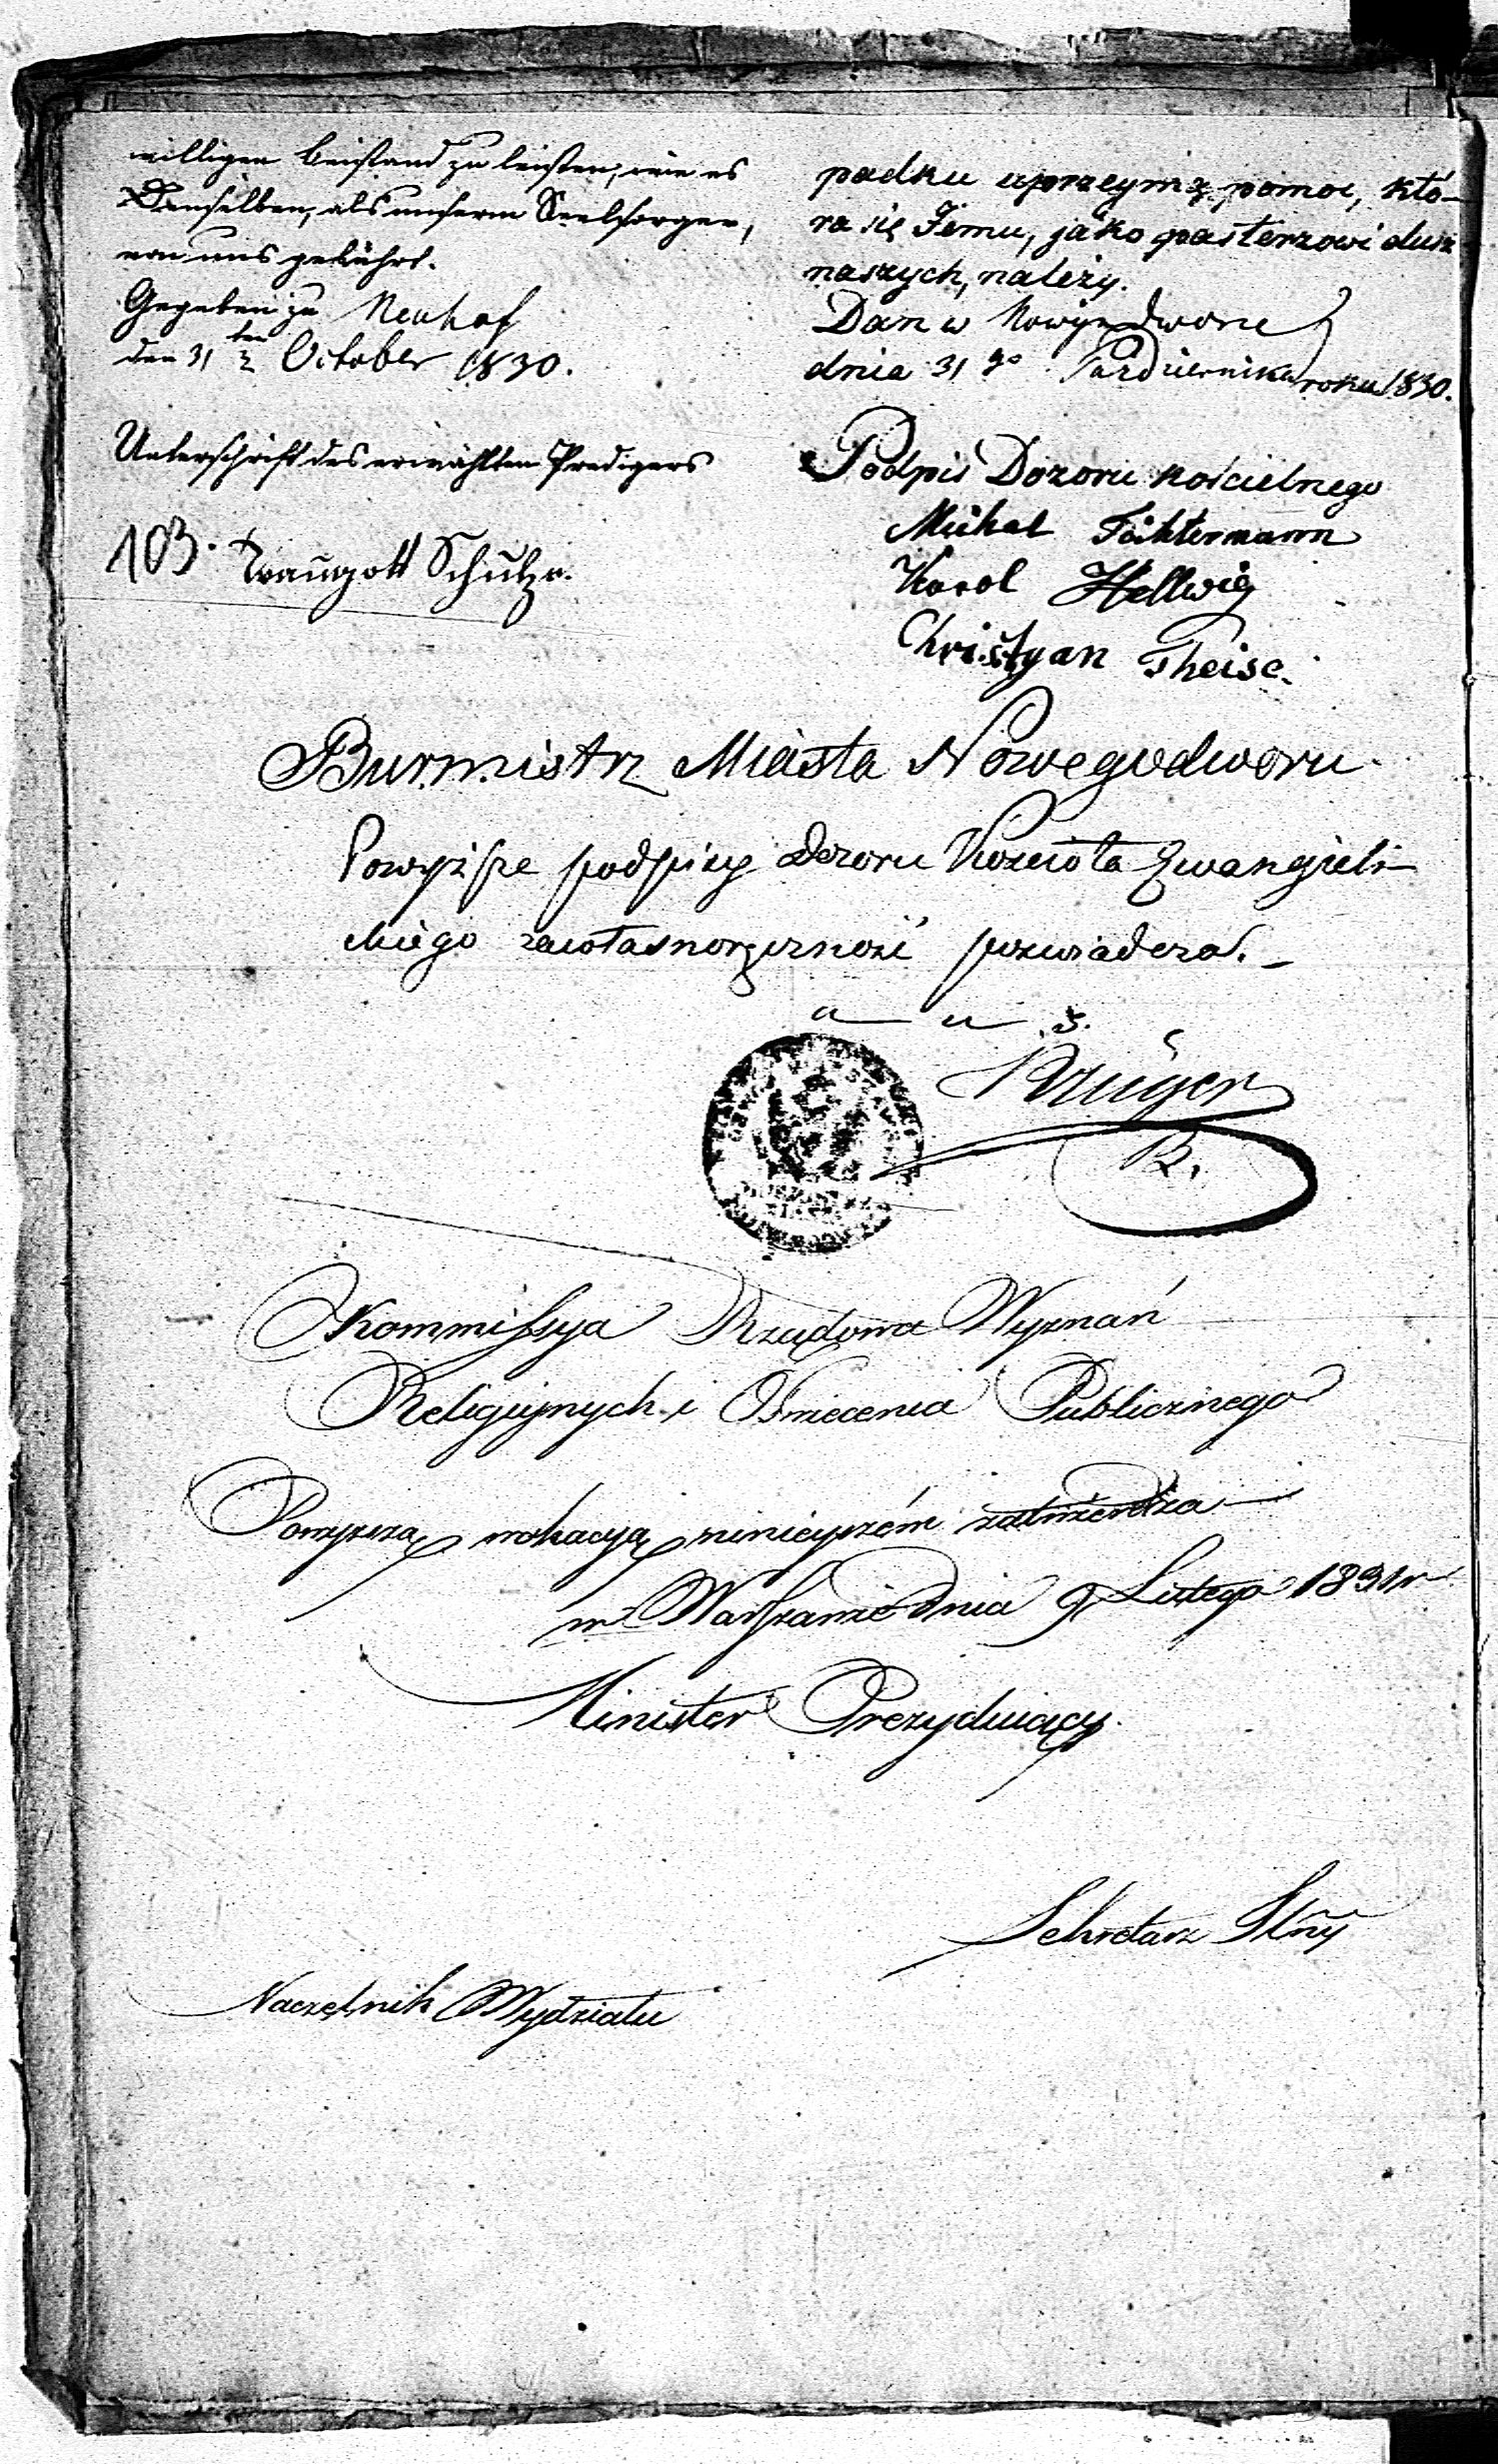 willigen Beistand zu leisten, wie es
Denselben, als unserm Seelsorger,
von uns gebührt.
Gegeben zu Neuhof
den 31 ten October 1830.
Unterschrift des erwählten Predigers
103. Traugott Schulze.
padku uprzeymą pomoc, któ-
ra się Jemu, jako pasterzowi dusz
naszych, należy.
Dan w Nowym dworze
dnia 31 go Pazdziernika roku 1830.
Podpis Dozoru kościelnego
Michal Fichtermann
Karol Hellwig
Christyan Theise.
Burmistrz Miasta Nowegodworu
Powyższe podpisy dozoru Kościoła Ewangieli-
ckiego za własnoręczność poświadcza.
Krüger
Kommissya Rządowa Wyznań
Religijnych i Oświecenia Publicznego
Powyższą wokacyą ninieyszém zatwierdza
w Warszawie dnia 9 Lutego 1831 r
Minister Prezyduiący
Sekretarz Jlny
Naczelnik Wydziału